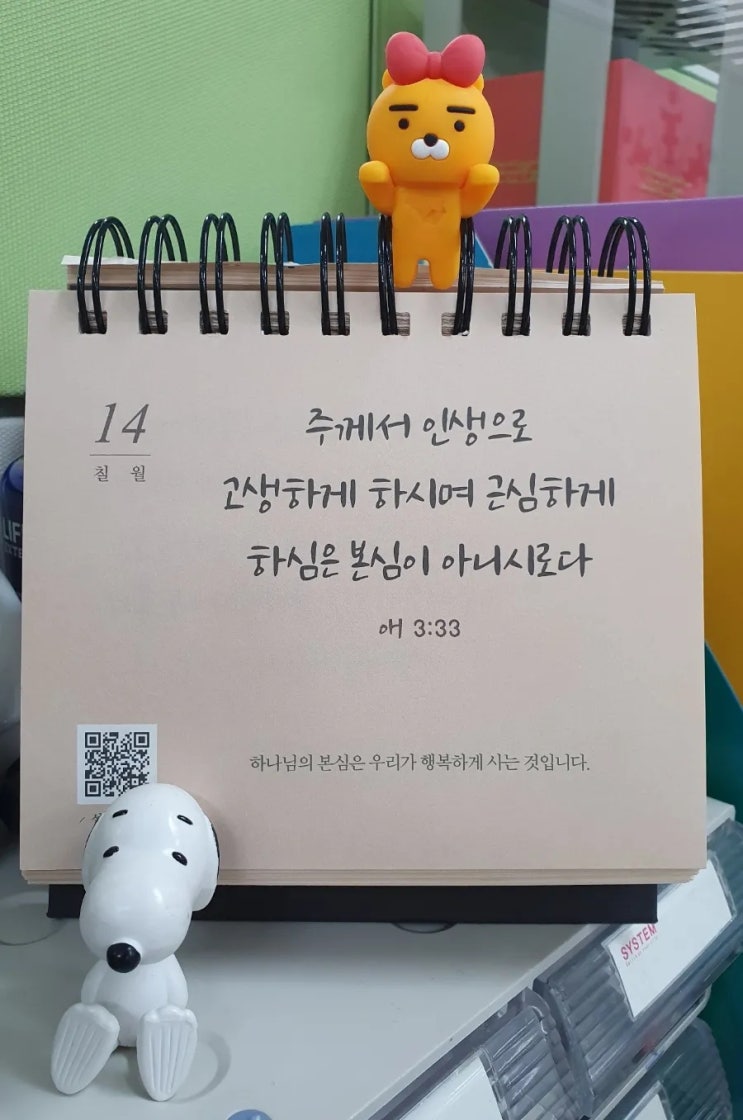 14
칠 월
주께서 인생으로
고생하게 하시며 근심하게
하심은 본심이 아니시로다
애 3:33
하나님의 본심은 우리가 행복하게 사는 것입니다.
SYSTEM